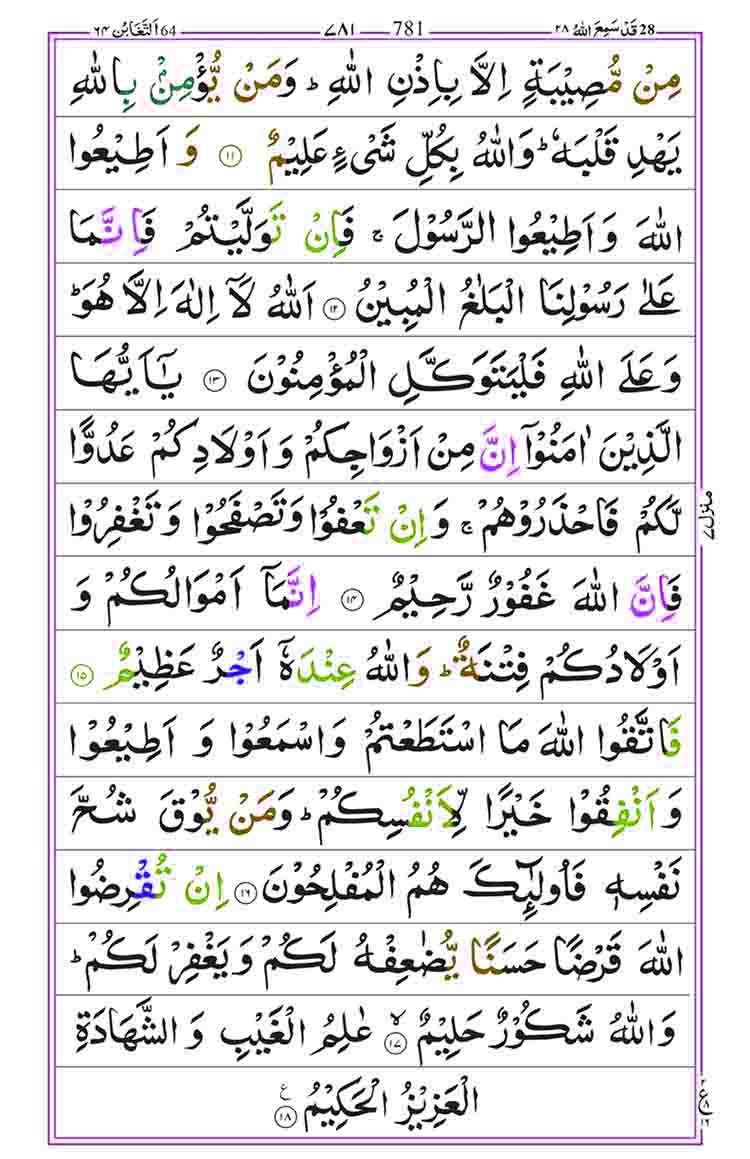 28 قَدْ سَمِعَ اللهُ ٢٨ 781 ٧٨١ 64 اَلتَّغَابُن ٦٤
مِنْ مُّصِيْبَةٍ اِلَّا بِاِذْنِ اللّٰهِ ؕ وَمَنْ يُّؤْمِنْۢ بِاللّٰهِ
يَهْدِ قَلْبَهٗ ؕ وَاللّٰهُ بِكُلِّ شَىْءٍ عَلِيْمٌ ١١ وَ اَطِيْعُوا
اللّٰهَ وَ اَطِيْعُوا الرَّسُوْلَ ۚ فَاِنْ تَوَلَّيْتُمْ فَاِنَّمَا
عَلٰى رَسُوْلِنَا الْبَلٰغُ الْمُبِيْنُ ١٢ اَللّٰهُ لَاۤ اِلٰهَ اِلَّا هُوَ ؕ
وَعَلَى اللّٰهِ فَلْيَتَوَكَّلِ الْمُؤْمِنُوْنَ ١٣ يٰۤاَيُّهَا
الَّذِيْنَ اٰمَنُوْۤا اِنَّ مِنْ اَزْوَاجِكُمْ وَ اَوْلَادِكُمْ عَدُوًّا
لَّكُمْ فَاحْذَرُوْهُمْ ۚ وَ اِنْ تَعْفُوْا وَتَصْفَحُوْا وَتَغْفِرُوْا
فَاِنَّ اللّٰهَ غَفُوْرٌ رَّحِيْمٌ ١٤ اِنَّمَاۤ اَمْوَالُكُمْ وَ
اَوْلَادُكُمْ فِتْنَةٌ ؕ وَاللّٰهُ عِنْدَهٗۤ اَجْرٌ عَظِيْمٌ ١٥
فَاتَّقُوا اللّٰهَ مَا اسْتَطَعْتُمْ وَاسْمَعُوْا وَ اَطِيْعُوْا
وَ اَنْفِقُوْا خَيْرًا لِّاَنْفُسِكُمْ ؕ وَمَنْ يُّوْقَ شُحَّ
نَفْسِهٖ فَاُولٰٓئِكَ هُمُ الْمُفْلِحُوْنَ ١٦ اِنْ تُقْرِضُوا
اللّٰهَ قَرْضًا حَسَنًا يُّضٰعِفْهُ لَكُمْ وَيَغْفِرْ لَكُمْ ؕ
وَاللّٰهُ شَكُوْرٌ حَلِيْمٌ ۙ ١٧ عٰلِمُ الْغَيْبِ وَ الشَّهَادَةِ
الْعَزِيْزُ الْحَكِيْمُ ١٨ ع
منزل ٧
٢ ع ٨ ١٦